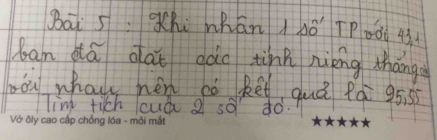 Bài 5 : Khi nhân 1 số TP với 43,1
bạn đã đặt các tính riêng thẳng
với nhau nên có kết quả là 95,55
Tìm tích của 2 số đó.
Vở ôly cao cấp chống lóa - mỏi mắt
★★★★★